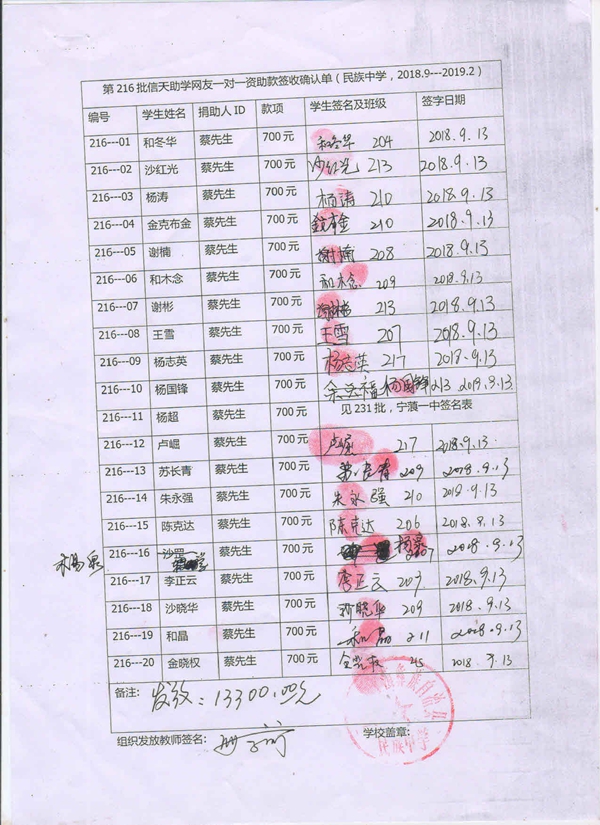 第 216 批信天助学网友一对一资助款签收确认单（民族中学，2018.9---2019.2）
编号 学生姓名 捐助人 ID 款项 学生签名及班级 签字日期
216---01 和冬华 蔡先生 700 元 和冬华 204 2018.9.13
216---02 沙红光 蔡先生 700 元 沙红光 213 2018.9.13
216---03 杨涛 蔡先生 700 元 杨涛 210 2018.9.13
216---04 金克布金 蔡先生 700 元 210 2018.9.13
216---05 谢楠 蔡先生 700 元 谢楠 208 2018.9.13
216---06 和木念 蔡先生 700 元 和木念 209 2018.9.13
216---07 谢彬 蔡先生 700 元 213 2018.9.13
216---08 王雪 蔡先生 700 元 王雪 207 2018.9.13
216---09 杨志英 蔡先生 700 元 杨志英 217 2018.9.13
216---10 杨国锋 蔡先生 700 元 杨国锋 213 2018.9.13
216---11 杨超 蔡先生 700 元 见 231 批，宁蒗一中签名表
216---12 卢崛 蔡先生 700 元 卢崛 217 2018.9.13
216---13 苏长青 蔡先生 700 元 209 2018.9.13
216---14 朱永强 蔡先生 700 元 朱永强 210 2018.9.13
216---15 陈克达 蔡先生 700 元 陈克达 206 2018.9.13
216---16 蔡先生 700 元 2018.9.13
216---17 李正云 蔡先生 700 元 李正云 207 2018.9.13
216---18 沙晓华 蔡先生 700 元 沙晓华 209 2018.9.13
216---19 和晶 蔡先生 700 元 和晶 211 2018.9.13
216---20 金晓权 蔡先生 700 元 2018.9.13
备注： 发放：13300.00元
组织发放教师签名： 学校盖章：
民族中学